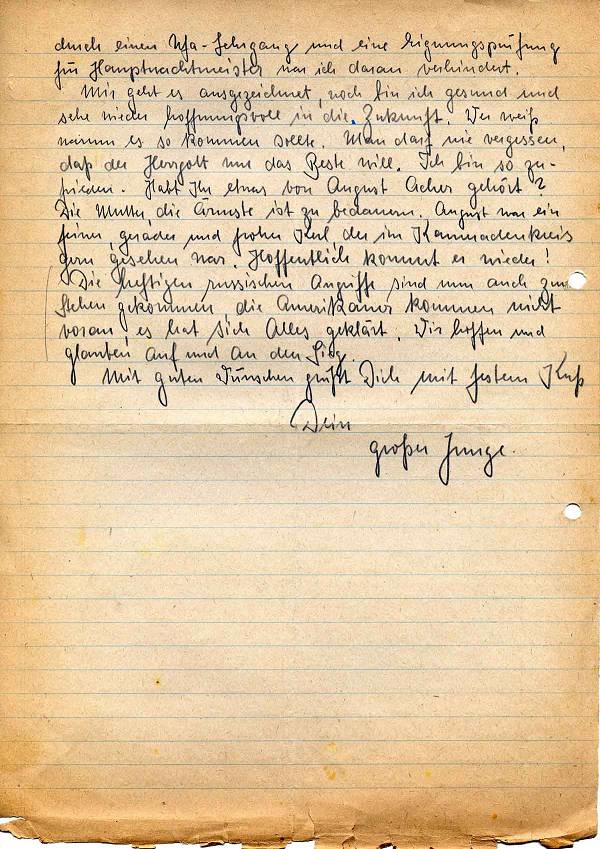 durch einen Ufa-Lehrgang und eine Eignungsprüfung
für Hauptwachtmeister war ich daran verhindert.
Mir geht es ausgezeichnet, noch bin ich gesund und
sehe wieder hoffnungsvoll in die Zukunft. Wer weiß
warum es so kommen sollte. Man darf nie vergessen,
daß der Herrgott nur das Beste will. Ich bin so zu-
frieden. Habt Ihr etwas von August Acher gehört?
Die Mutter, die Ärmste ist zu bedauern. August war ein
feiner, gerader und froher Kerl der im Kameradenkreis
gern gesehen war. Hoffentlich kommt er wieder!
Die heftigen russischen Angriffe, sind nun auch zum
Stehen gekommen, die Amerikaner kommen nicht
voran, es hat sich Alles geklärt. Wir hoffen und
glauben auf und an den Sieg.
Mit guten Wünschen grüßt Dich mit festem Kuß
Dein
großer Junge.